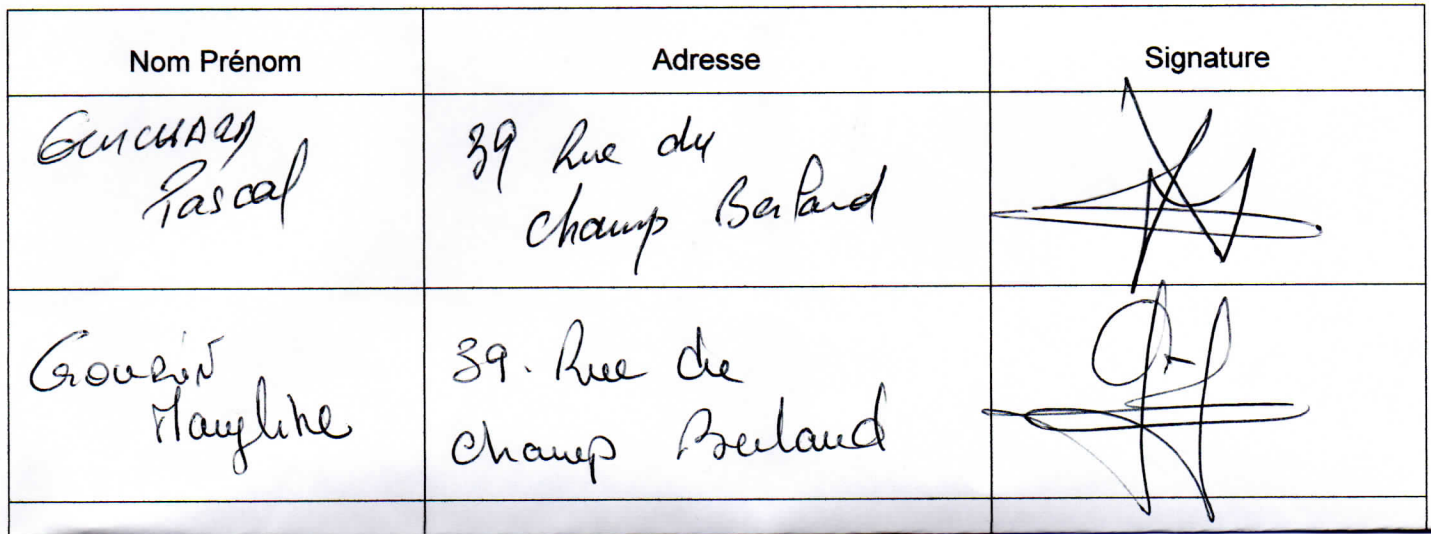 Nom Prénom
Adresse
Signature
GUICHARD
Pascal
39 Rue du
champ Berland
39. Rue du
champ Berland